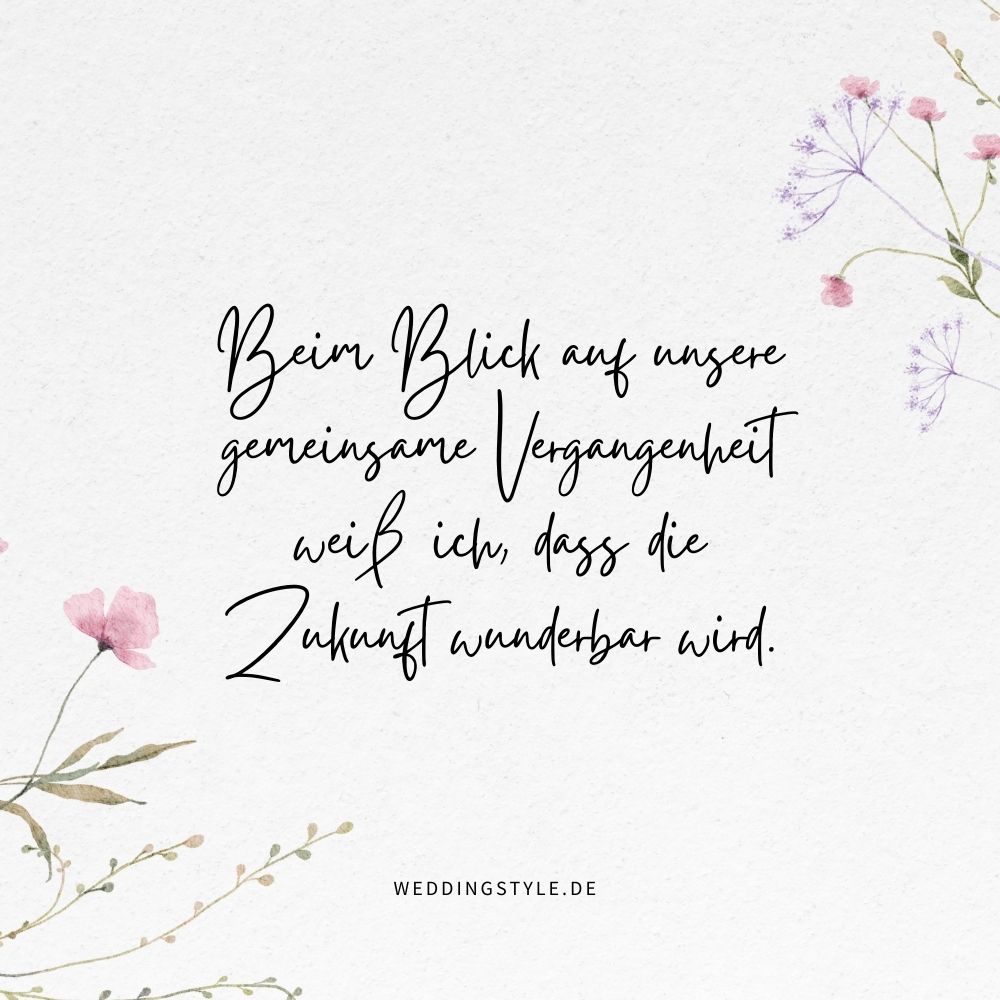 Beim Blick auf unsere
gemeinsame Vergangenheit
weiß ich, dass die
Zukunft wunderbar wird.
WEDDINGSTYLE.DE